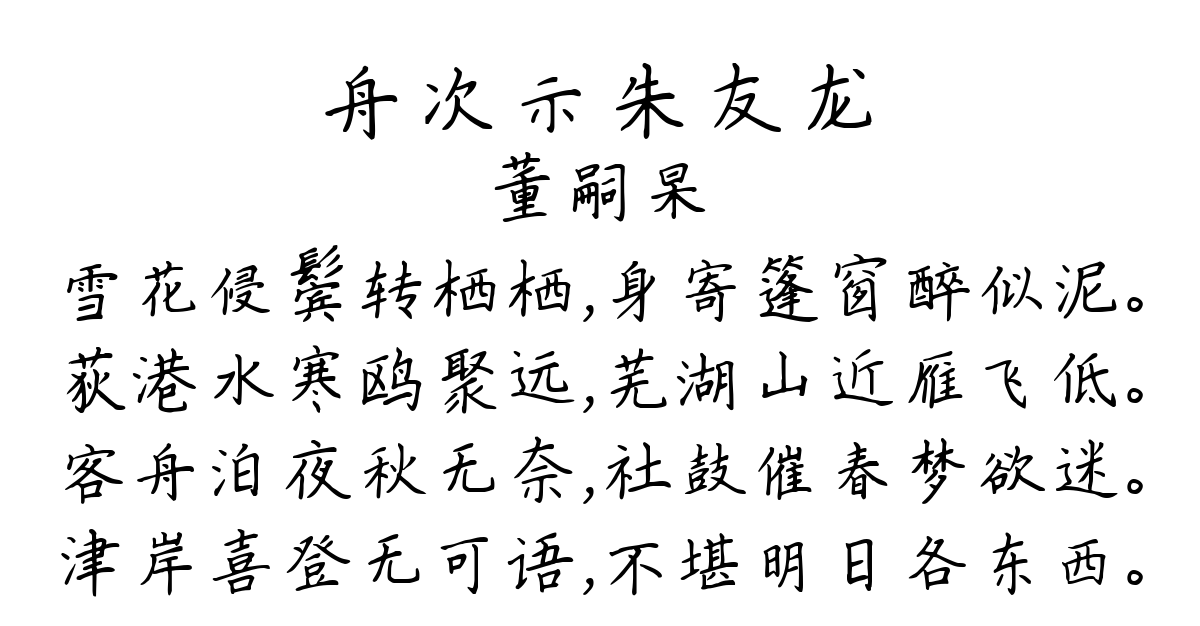 舟次示朱友龙
董嗣杲
雪花侵鬓转栖栖,身寄篷窗醉似泥。
荻港水寒鸥聚远,芜湖山近雁飞低。
客舟泊夜秋无奈,社鼓催春梦欲迷。
津岸喜登无可语,不堪明日各东西。